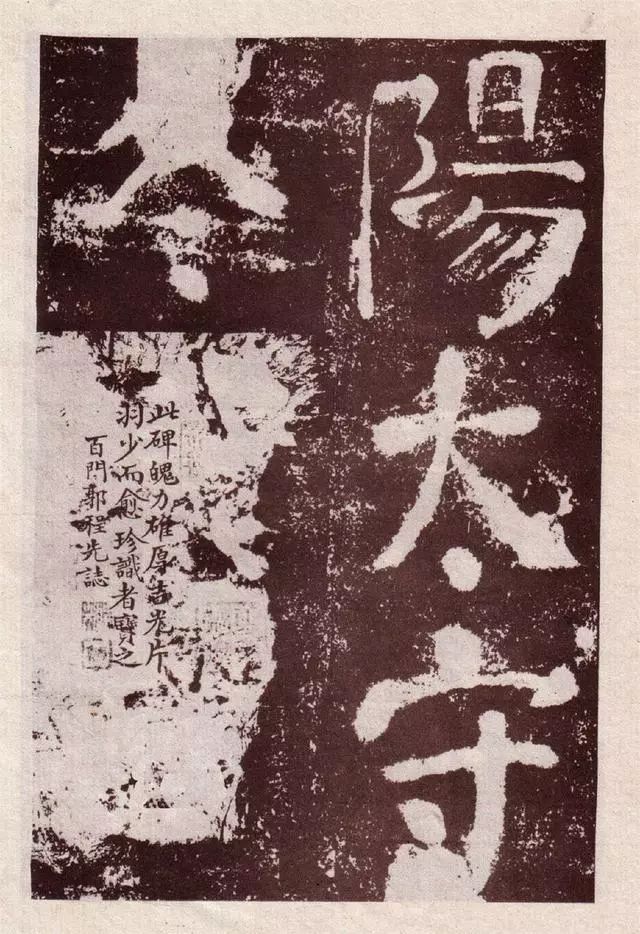 陽太守
此碑魄力雄厚吉光片
羽少而愈珍識者寶之
百門郭程先誌